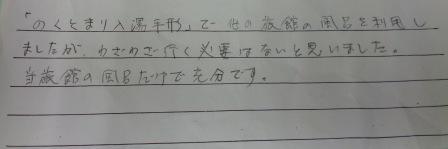 「のくとまり入湯手形」で他の旅館の風呂を利用し
ましたが、わざわざ行く必要はないと思いました。
当旅館の風呂だけで充分です。